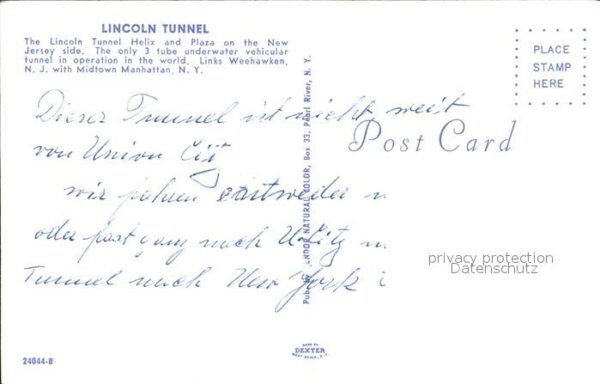 LINCOLN TUNNEL
The Lincoln Tunnel Helix and Plaza on the New
Jersey side. The only 3 tube underwater vehicular
tunnel in operation in the world. Links Weehawken,
N. J. with Midtown Manhattan, N. Y.
PLACE
STAMP
HERE
Post Card
Dieser Tunnel ist nicht weit
von Union City
wir fahren entweder
oder fast ganz nach U.City
Tunnel nach New York
NDOR NATURAL COLOR, Box 33, Pearl River, N. Y.
privacy protection
Datenschutz
MADE BY
DEXTER
WEST NYACK, N.Y.
24044-B